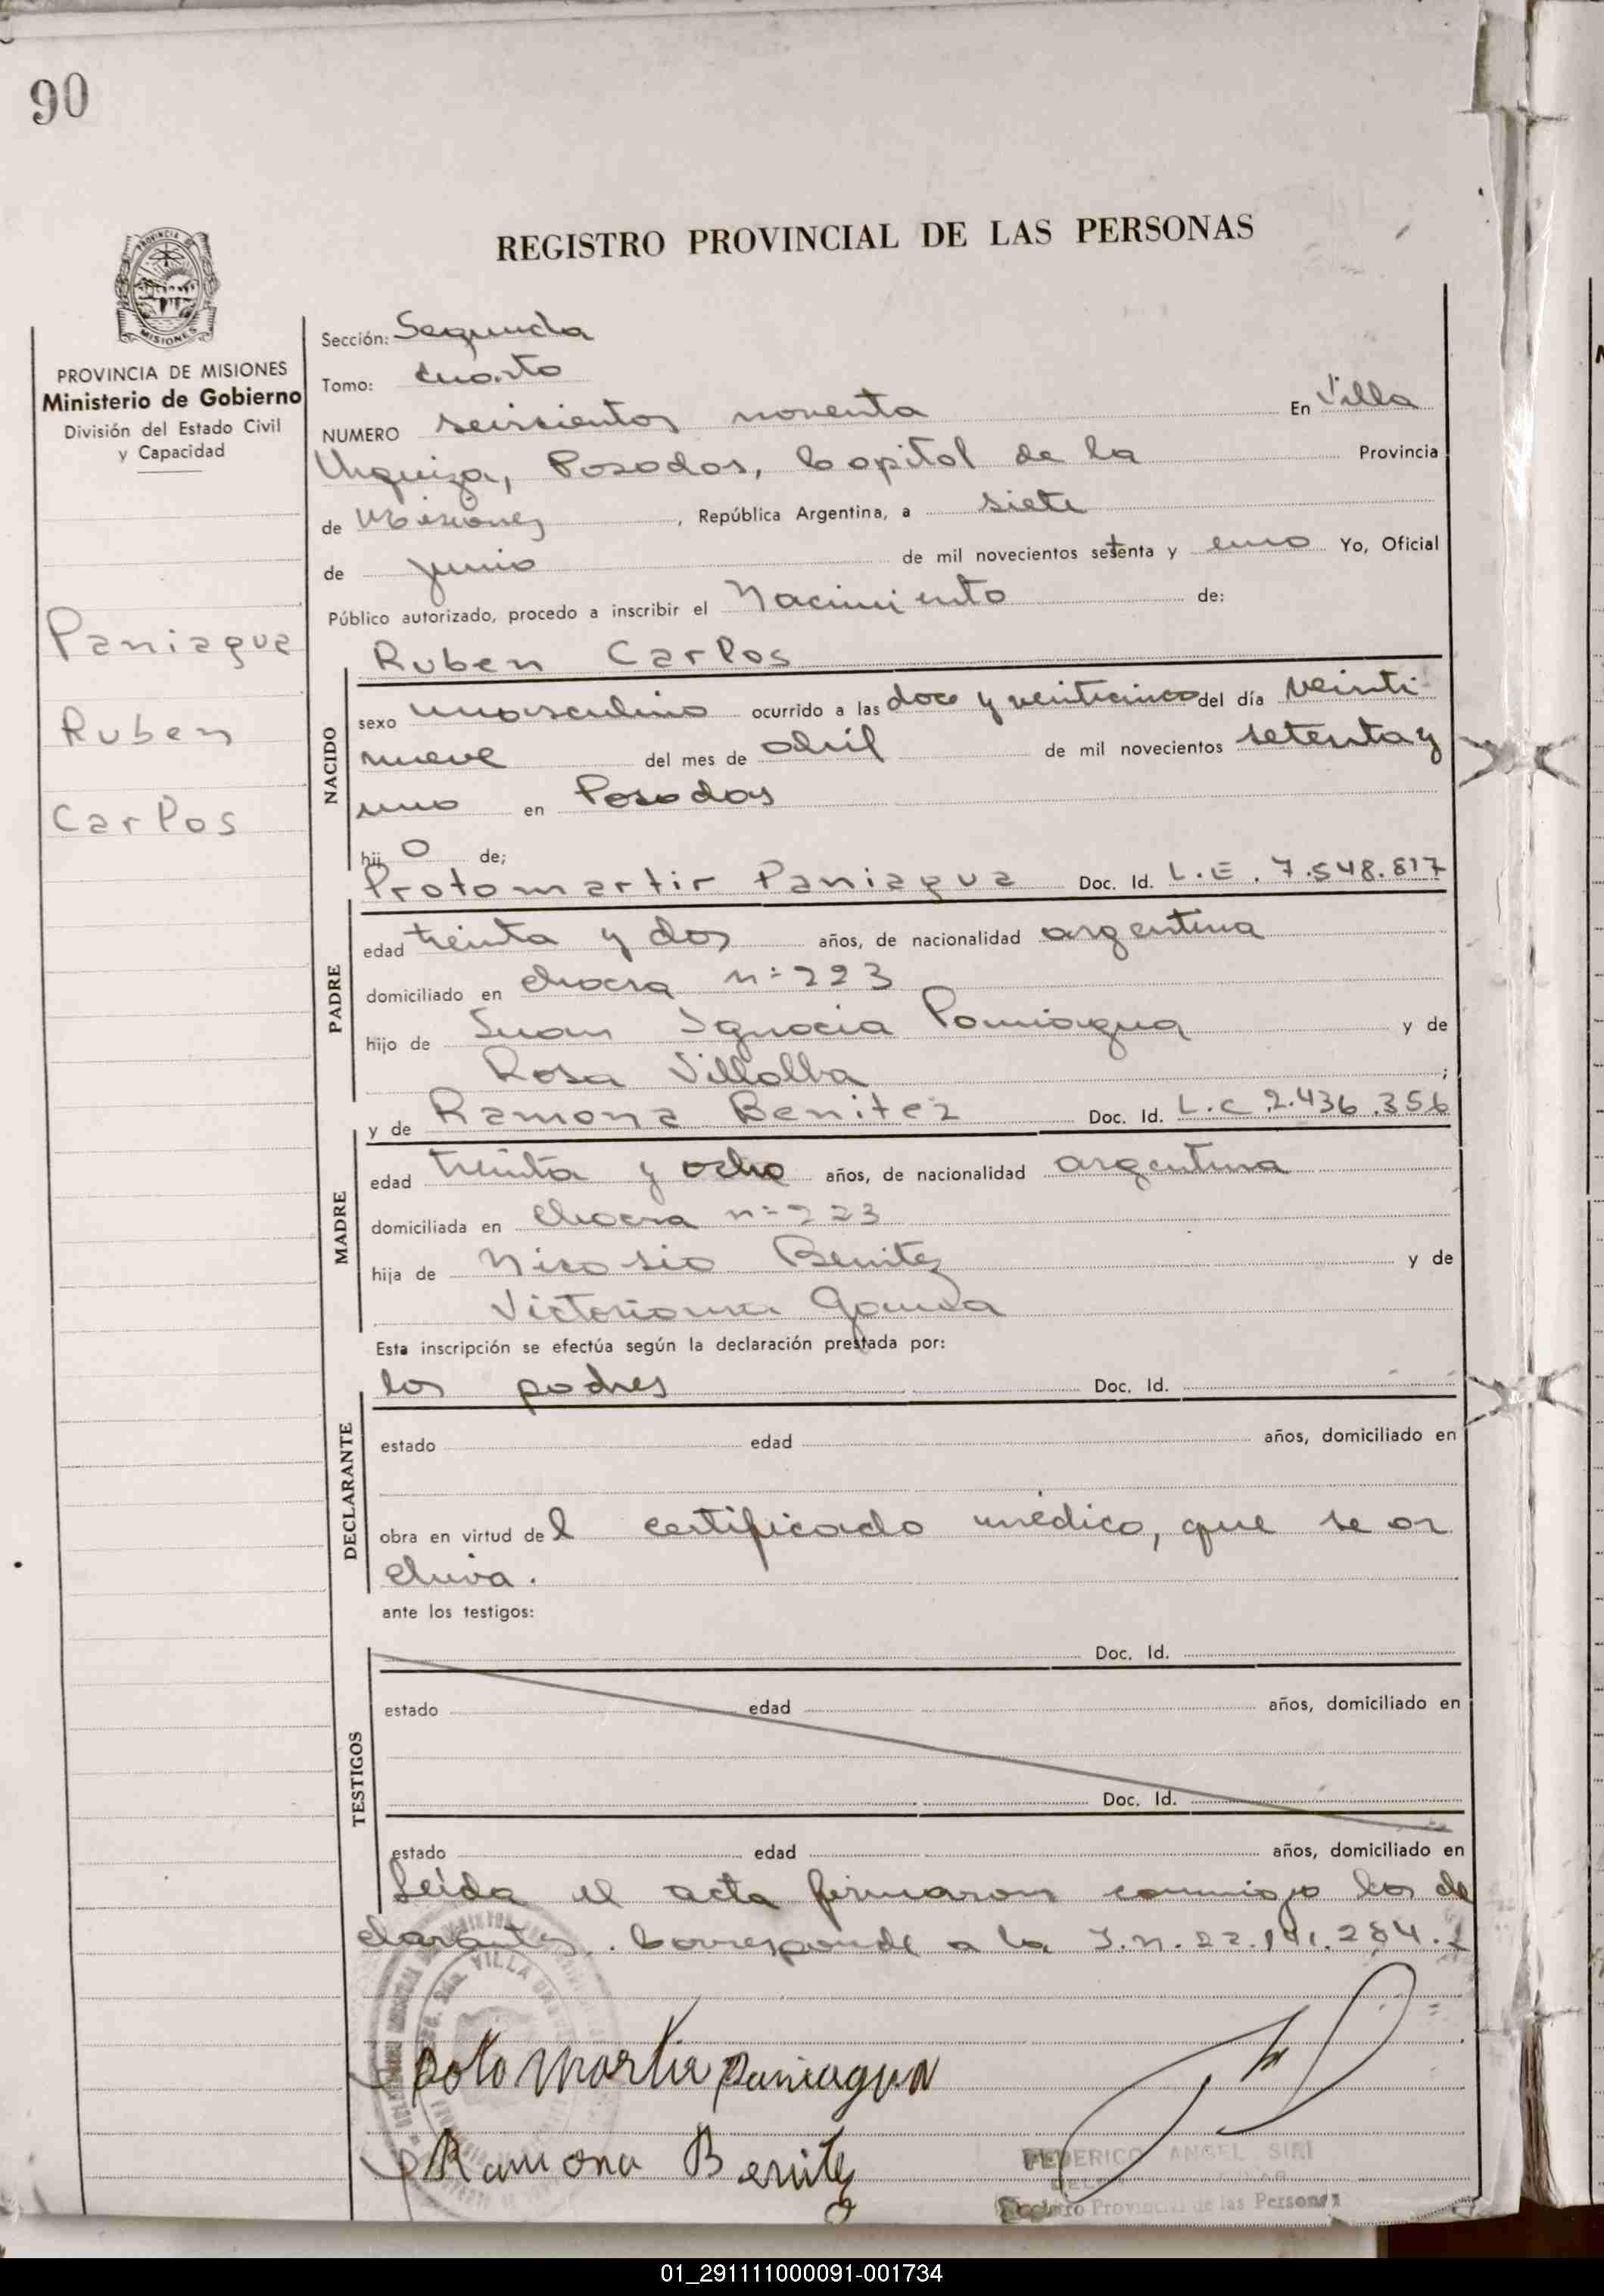 90
REGISTRO PROVINCIAL DE LAS PERSONAS
PROVINCIA DE
MISIONES
PROVINCIA DE MISIONES
Ministerio de Gobierno
División del Estado Civil
y Capacidad
Paniagua
Ruben
Carlos
Sección: Segunda
Tomo: cuarto
NUMERO seiscientos noventa En Villa
Urquiza, Posadas, Capital de la Provincia
de Misiones, República Argentina, a siete
de junio de mil novecientos setenta y uno Yo, Oficial
Público autorizado, procedo a inscribir el Nacimiento de:
Ruben Carlos
NACIDO
sexo masculino ocurrido a las doce y veinticinco del día veinti
nueve del mes de abril de mil novecientos setenta y
uno en Posadas
hij o de;
Protomartir Paniagua Doc. Id. L.E. 7.548.817
PADRE
edad treinta y dos años, de nacionalidad argentina
domiciliado en chacra n=223
hijo de Juan Ignacia Paniagua y de
Rosa Villalba ;
y de Ramona Benitez Doc. Id. L.C 2.436.356
MADRE
edad treinta y ocho años, de nacionalidad argentina
domiciliada en chacra n=223
hija de Nicasio Benitez y de
Victoriana
Esta inscripción se efectúa según la declaración prestada por:
los padres Doc. Id.
DECLARANTE
estado edad años, domiciliado en
obra en virtud de l certificado médico, que se ar
chiva.
ante los testigos:
Doc. Id.
TESTIGOS
estado edad años, domiciliado en
Doc. Id.
estado edad años, domiciliado en
Leida el acta firmaron conmigo los de
clarantes. Corresponde a la
VILLA
Paniagua
Ramona Benitez
FEDERICO ANGEL SIRI
Registro Provincial de las Personas
01_291111000091-001734